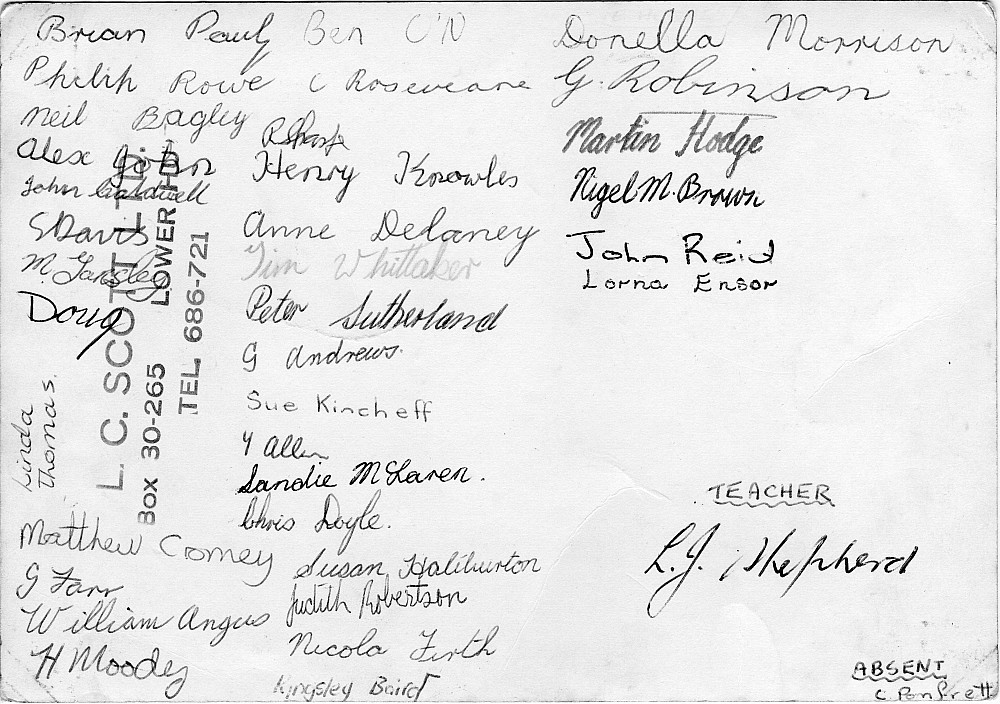 Brian Pauly Ben O'N
Philip Rowe C Roseveare
Neil Bagley
Alex
John Caldwell
S Davis
M. Tansley
Doug
L. C. SCOTT LTD.
Box 30-265 LOWER HUTT
TEL. 686-721
Linda
Thomas.
Matthew Comey
G Farr
William Angus
H Moodey
R Sharp
Henry Knowles
Anne Delaney
Tim Whittaker
Peter Sutherland
G Andrews.
Sue Kincheff
Y Allen
Sandie McLaren.
Chris Doyle.
Susan Haliburton
Judith Robertson
Nicola Firth
Kingsley Baird
Donella Morrison
G. Robinson
Martin Hodge
Nigel M. Brown
John Reid
Lorna Ensor
TEACHER
L. J. Shepherd
ABSENT
C Ponfrett